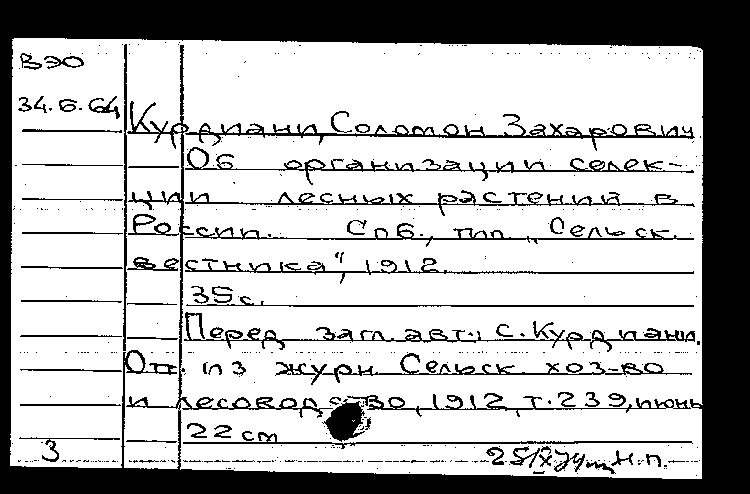 ВЭО
34.6.64
Курдиани, Соломон Захарович
Об организации селек-
ции лесных растений в
России. Спб., тип. „Сельск.
вестника", 1912.
35 с.
Перед загл. авт.: С. Курдиани.
Отт. из журн. Сельск. хоз-во
и лесоводство, 1912, т. 239, июнь
22 см
3 Н.П.